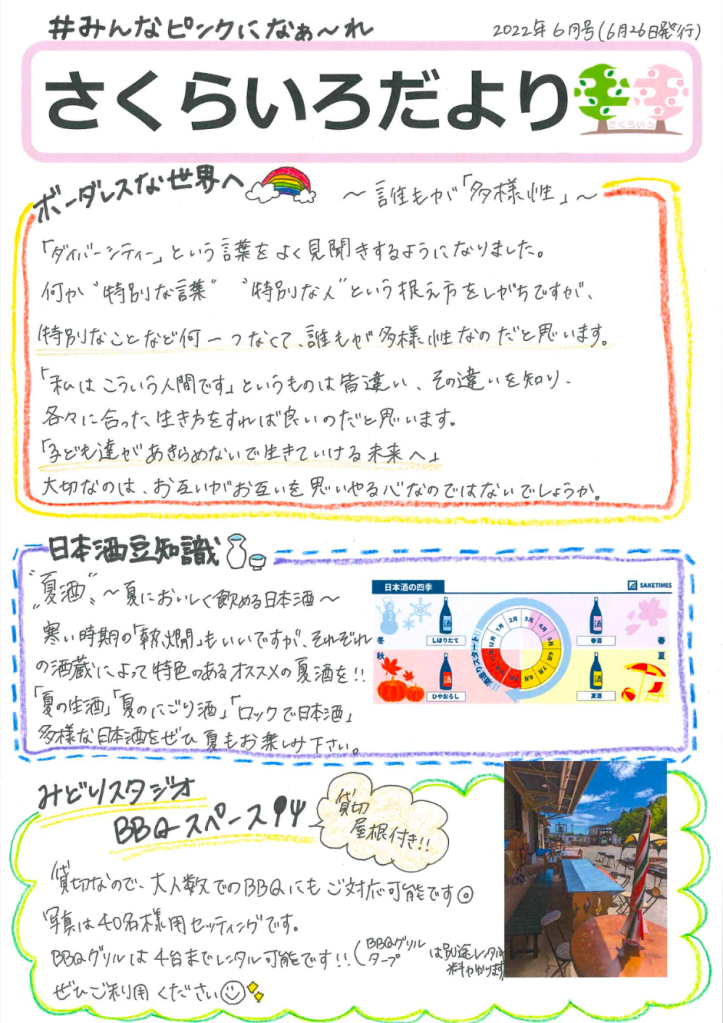 #みんなピンクになぁ〜れ
2022年6月号(6月26日発行)
さくらいろだより
さくらいろ
ボーダレスな世界へ
〜誰もが「多様性」〜
「ダイバーシティー」という言葉をよく見聞きするようになりました。
何か"特別な言葉" "特別な人"という捉え方をしがちですが、
特別なことなど何一つなくて、誰もが多様性なのだと思います。
「私はこういう人間です」というものは皆違い、その違いを知り、
各々に合った生き方をすれば良いのだと思います。
「子ども達があきらめないで生きていける未来へ」
大切なのは、お互いがお互いを思いやる心なのではないでしょうか。
日本酒豆知識
"夏酒"〜夏においしく飲める日本酒〜
寒い時期の「熱燗」もいいですが、それぞれ
の酒蔵によって特色のあるオススメの夏酒を!!
「夏の生酒」「夏のにごり酒」「ロックで日本酒」
多様な日本酒をぜひ夏もお楽しみ下さい。
日本酒の四季
SAKETIMES
冬
しぼりたて
春酒
春
秋
ひやおろし
夏酒
夏
酒造りスタート!!
1月
2月
3月
4月
5月
6月
7月
8月
9月
10月
11月
12月
みどりスタジオ
BBQスペース
貸切
屋根付き!!
貸切なので、大人数でのBBQにもご対応可能です◎
写真は40名様用セッティングです。
BBQグリルは4台までレンタル可能です!!(BBQグリル タープ は別途レンタル料かかります
ぜひご利用ください☺